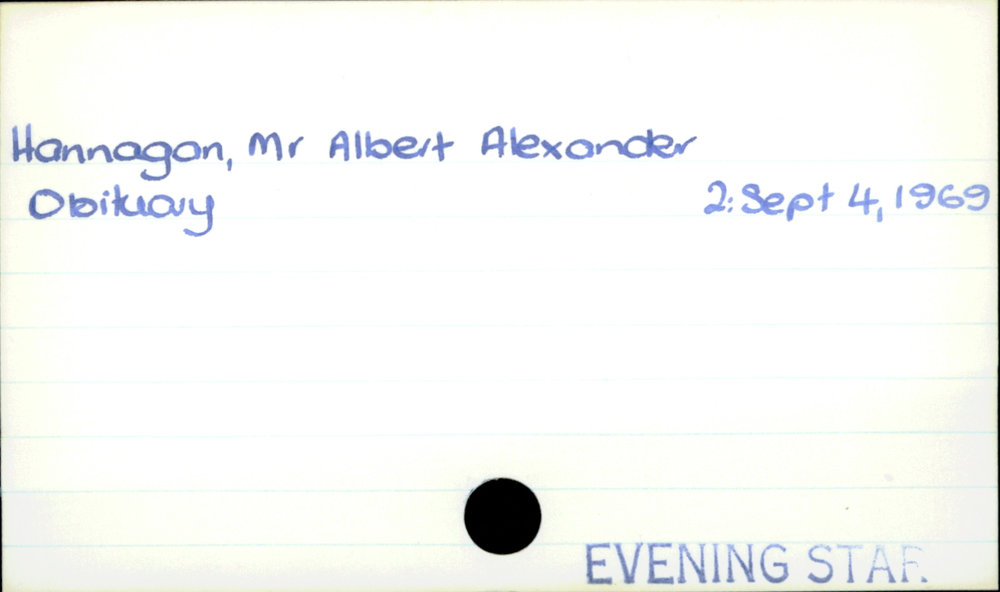 Hannagan, Mr Albert Alexander
Obituary 2: Sept 4, 1969
EVENING STAR